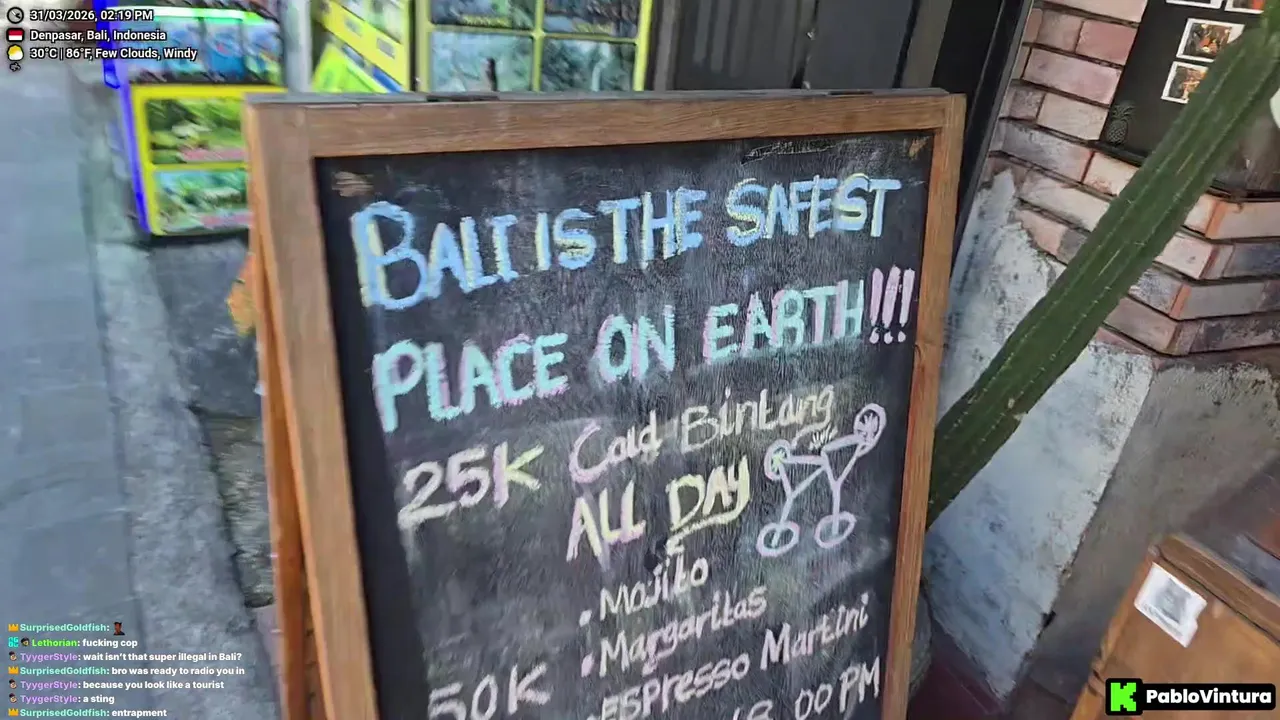 31/03/2026, 02:19 PM
Denpasar, Bali, Indonesia
30°C | 86°F, Few Clouds, Windy
BALI IS THE SAFEST
PLACE ON EARTH!!!
25K Cold Bintang
ALL DAY
• Mojito
• Margaritas
50K • ESPRESSO Martini
00 PM
SurprisedGoldfish:
Lethorian: fucking cop
TyygerStyle: wait isn't that super illegal in Bali?
SurprisedGoldfish: bro was ready to radio you in
TyygerStyle: because you look like a tourist
TyygerStyle: a sting
SurprisedGoldfish: entrapment
K PabloVintura